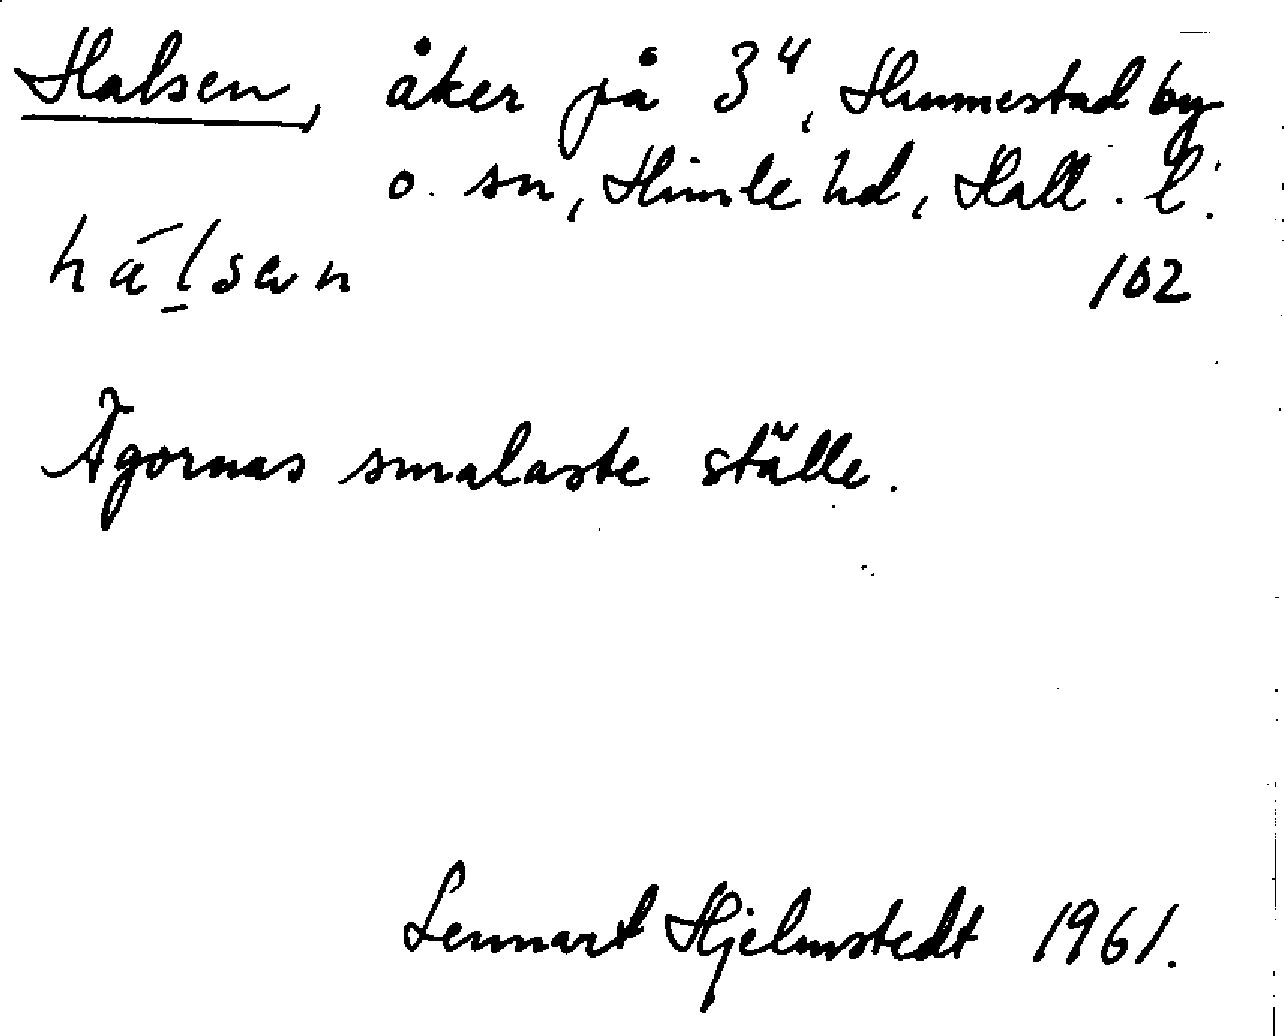 Halsen, åker på 3⁴, Hunnestad by
o. sn, Himle hd, Hall. l.
hālsən 102
Ägornas smalaste ställe.
Lennart Hjelmstedt 1961.